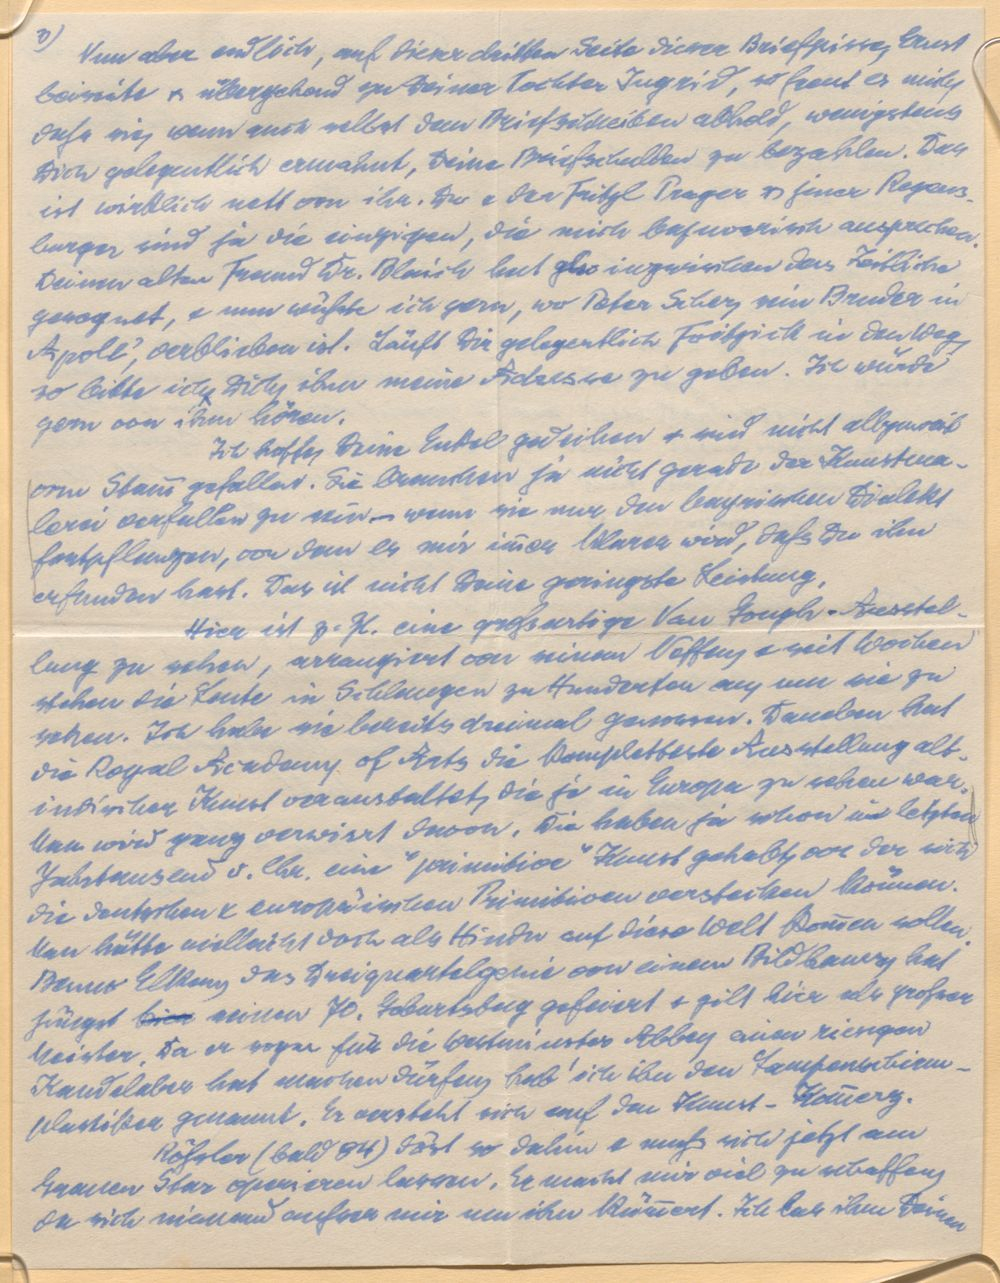 3)
Nun aber endlich, auf dieser dritten Seite dieser Briefpisse, Ernst
beiseite & übergehend zu Deiner Tochter Ingrid, so freut es mich,
dass sie, wenn auch selbst dem Briefschreiben abhold, wenigstens
Dich gelegentlich ermahnt, Deine Briefschulden zu bezahlen. Das
ist wirklich nett von ihr. Du & der Fritzl Prager & seiner Regens-
burger sind ja die einzigen, die mich bajuvarisch ansprechen.
Deinen alten Freund Dr. Blaich hat inzwischen das Zeitliche
gesegnet, & nun wüsste ich gern, wo Peter Scher, sein Bruder in
Apoll', verblieben ist. Läuft Dir gelegentlich in den Weg,
so bitte ich Dich, ihm meine Adresse zu geben. Ich würde
gern von ihm hören.
Ich hoffe, Deine Enkel gedeihen & sind nicht allzuweit
vom Stam̄ gefallen. Sie brauchen ja nicht gerade der Kunstma-
lerei verfallen zu sein – wenn sie nur den bayrischen Dialekt
fortpflanzen, von dem es mir im̄er klarer wird, dass Du ihn
erfunden hast. Das ist nicht Deine geringste Leistung.
Hier ist z. Zt. eine grossartige Van Gough-Ausstel-
lung zu sehen, arrangiert von seinem Neffen, & seit Wochen
stehen die Leute in Schlangen zu Hunderten an, um sie zu
sehen. Ich habe sie bereits dreimal genossen. Daneben hat
die Royal Academy of Arts die kompletteste Ausstellung alt-
indischer Kunst veranstaltet, die je in Europa zu sehen war.
Man wird ganz verwirrt davon. Die haben ja schon im letzten
Jahrtausend v. Chr. eine "primitive" Kunst gehabt, vor der sich
die deutschen & europäischen Primitiven verstecken können.
Man hätte vielleicht doch als Hindu auf diese Welt kom̄en sollen.
Benno Elkan, das Dreiquartelgenie von einem Bildhauer, hat
jüngst seinen 70. Geburtstag gefeiert & gilt hier als grosser
Meister. Da er sogar für die Westminster Abbey einen riesigen
Kandelaber hat machen dürfen, hab' ich ihn den Lampenschirm-
plastiker genannt. Er versteht sich auf den Kunst-Kom̄erz.
Rössler (bald 84) döst so dahin & muss sich jetzt am
Grauen Star operieren lassen. Er macht mir viel zu schaffen,
da sich niemand ausser mir um ihn küm̄ert. Ich las ihm Deinen